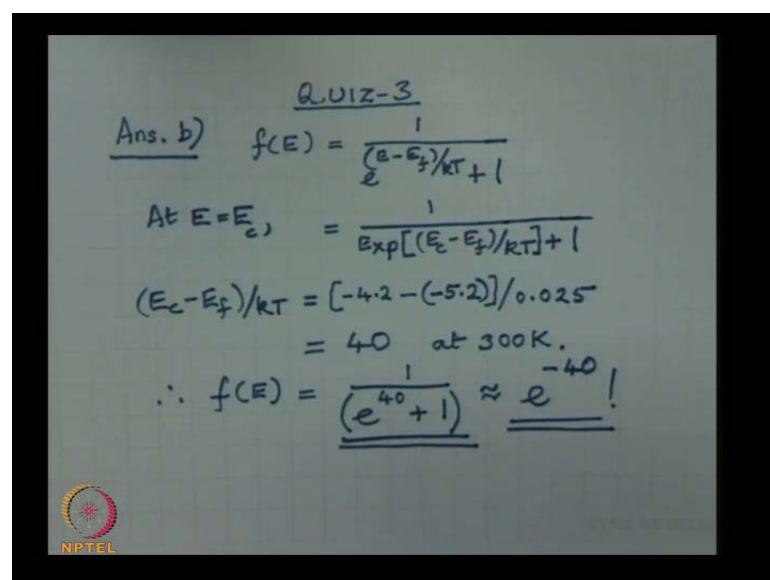 QUIZ-3
Ans. b) f(E) = 1 / (e^(E-E_f)/kT + 1)
At E=E_c, = 1 / (Exp[(E_c-E_f)/kT]+1)
(E_c-E_f)/kT = [-4.2-(-5.2)]/0.025
= 40 at 300K.
∴ f(E) = 1 / (e^40 + 1) ≈ e^-40 !
NPTEL